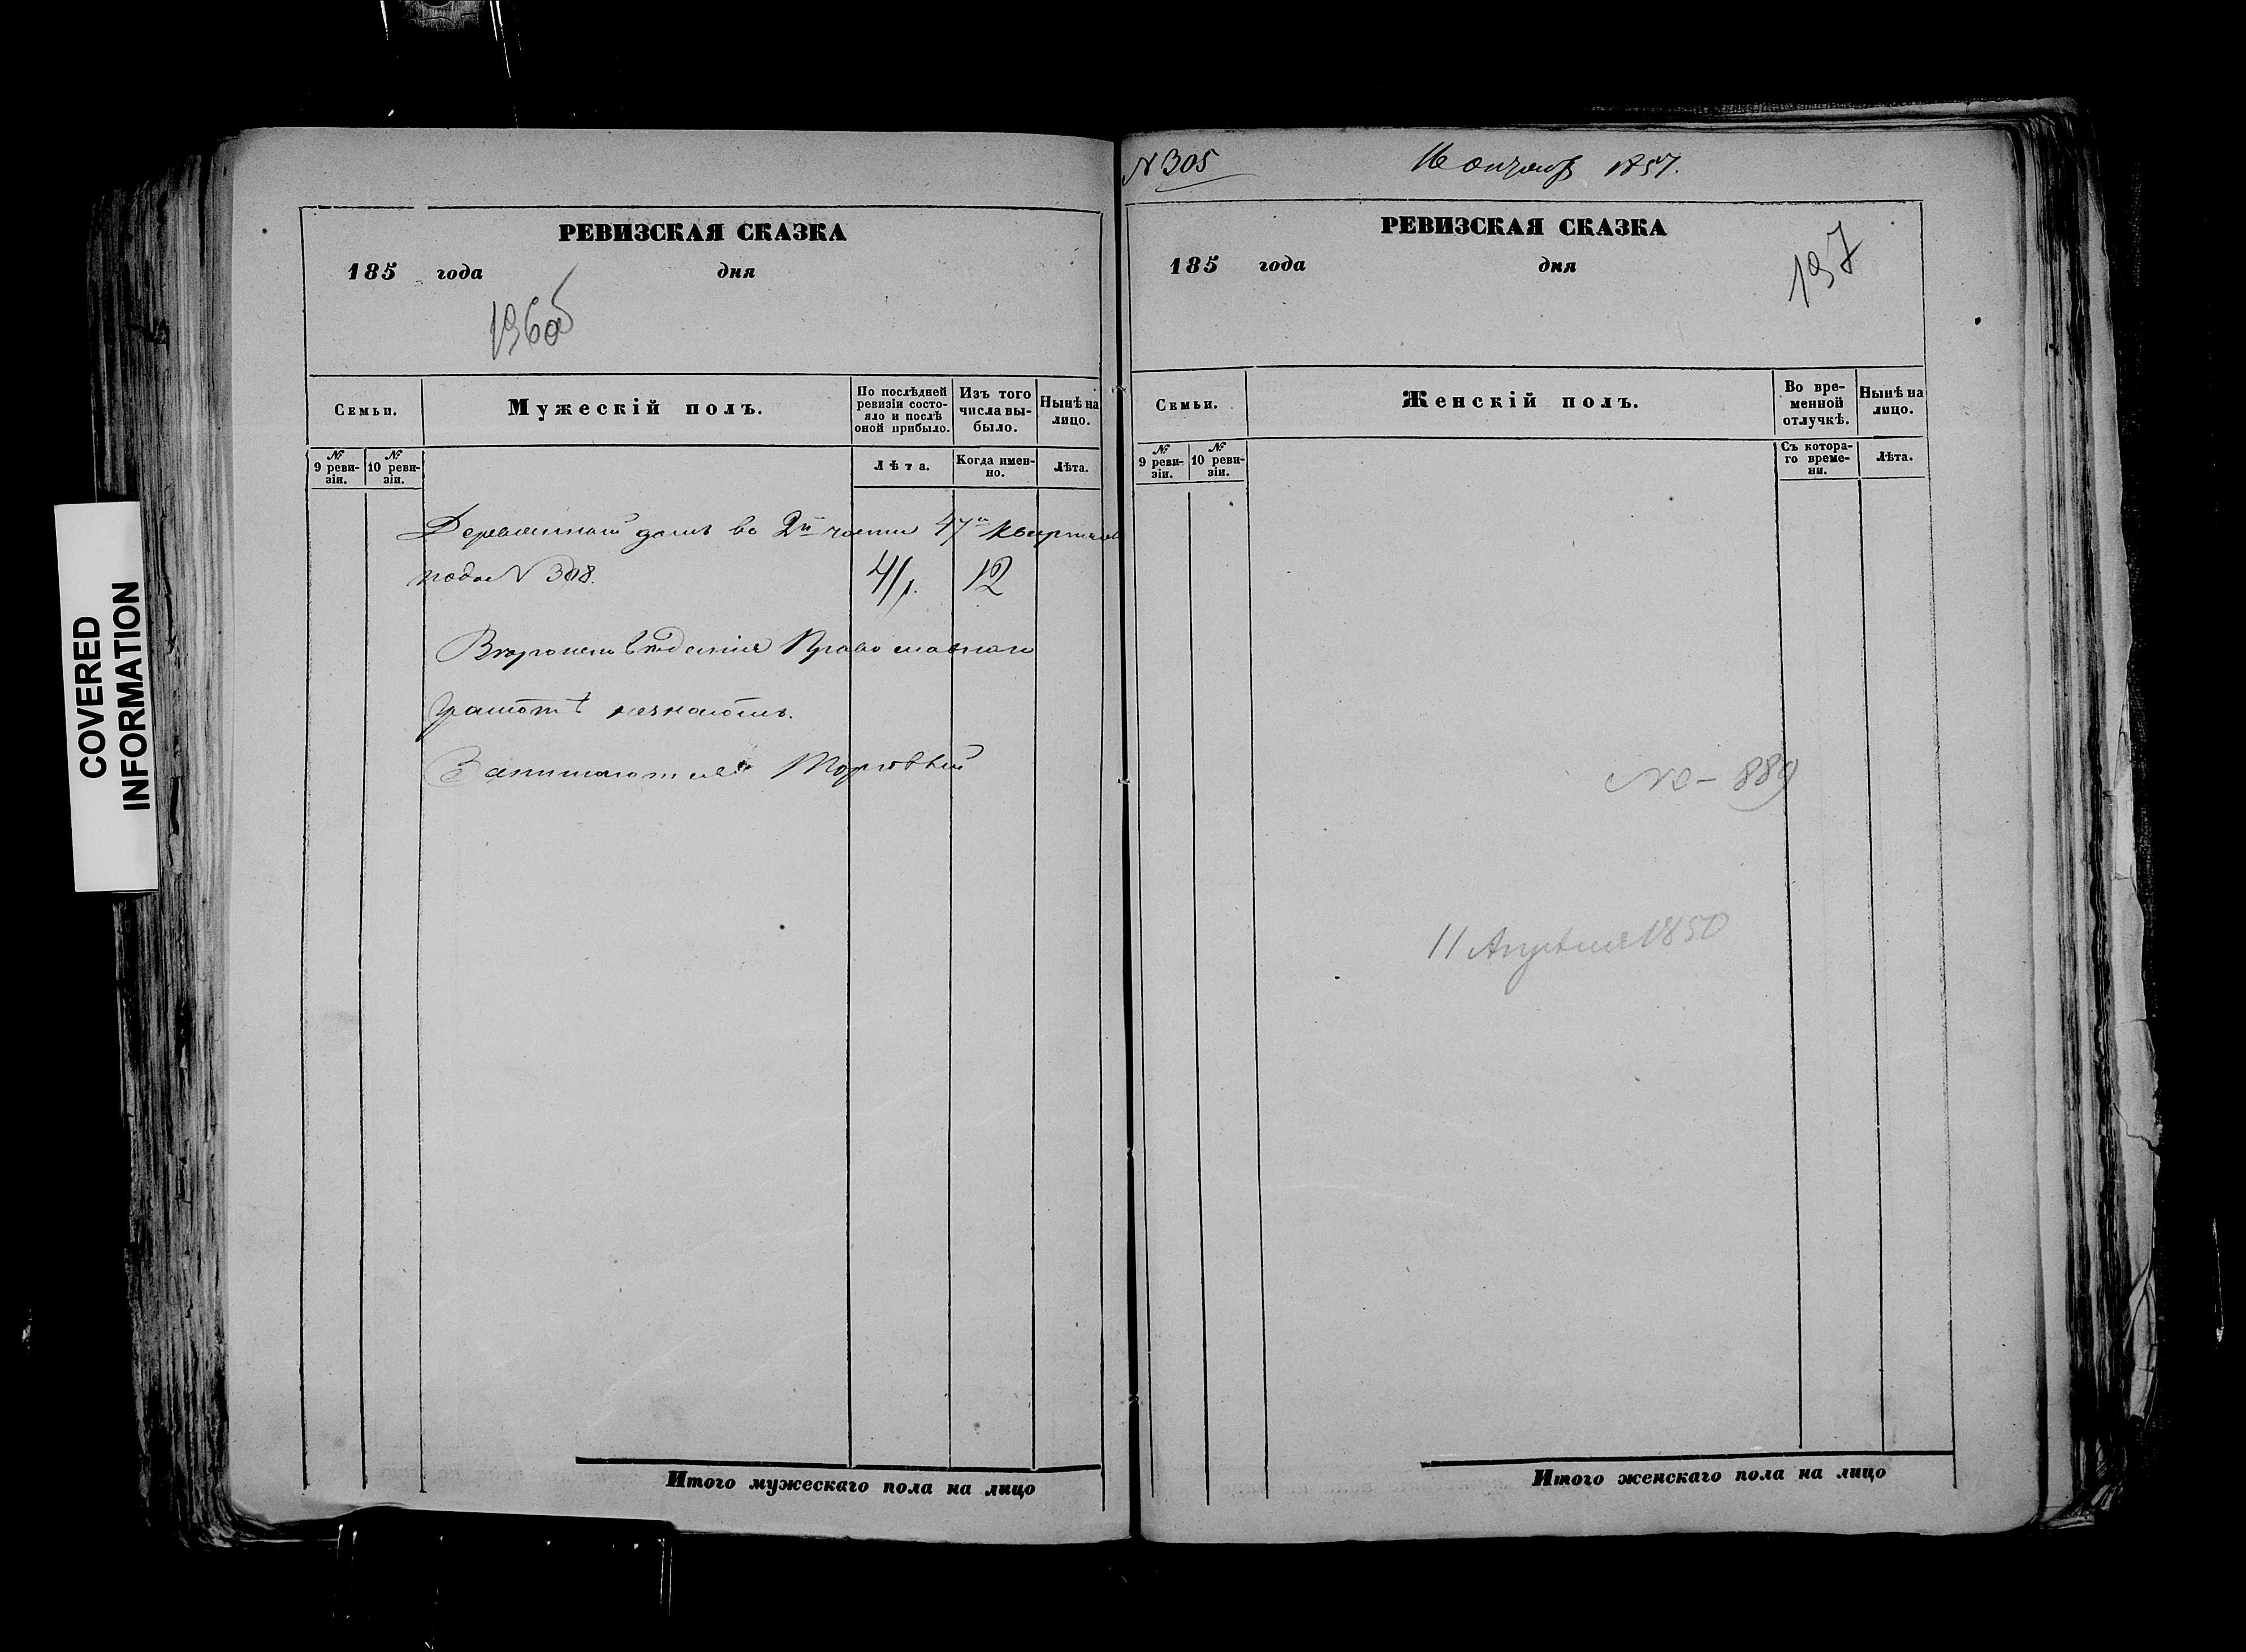 COVERED
INFORMATION
РЕВИЗСКАЯ СКАЗКА
185 года дня
196об
Семьи.
Мужескій полъ.
По послѣдней ревизіи состо-
яло и послѣ
оной прибыло.
Изъ того
числа вы-
было.
Нынѣ на
лицо.
№ 9 реви-
зіи.
№ 10 реви-
зіи.
Лѣта.
Когда имен-
но.
Лѣта.
домъ во 2й части 47й
подъ №
4/1. 12
Православнаго
грамотѣ незнаютъ.
Занимаются Торговлей
Итого мужескаго пола на лицо
№ 305
16 1857.
РЕВИЗСКАЯ СКАЗКА
185 года дня
197
Семьи.
Женскій полъ.
Во вре-
менной
отлучкѣ.
Нынѣ на
лицо.
№ 9 реви-
зіи.
№ 10 реви-
зіи.
Съ котора-
го време-
ни.
Лѣта.
№ - 889
11 Апрѣля 1850
Итого женскаго пола на лицо